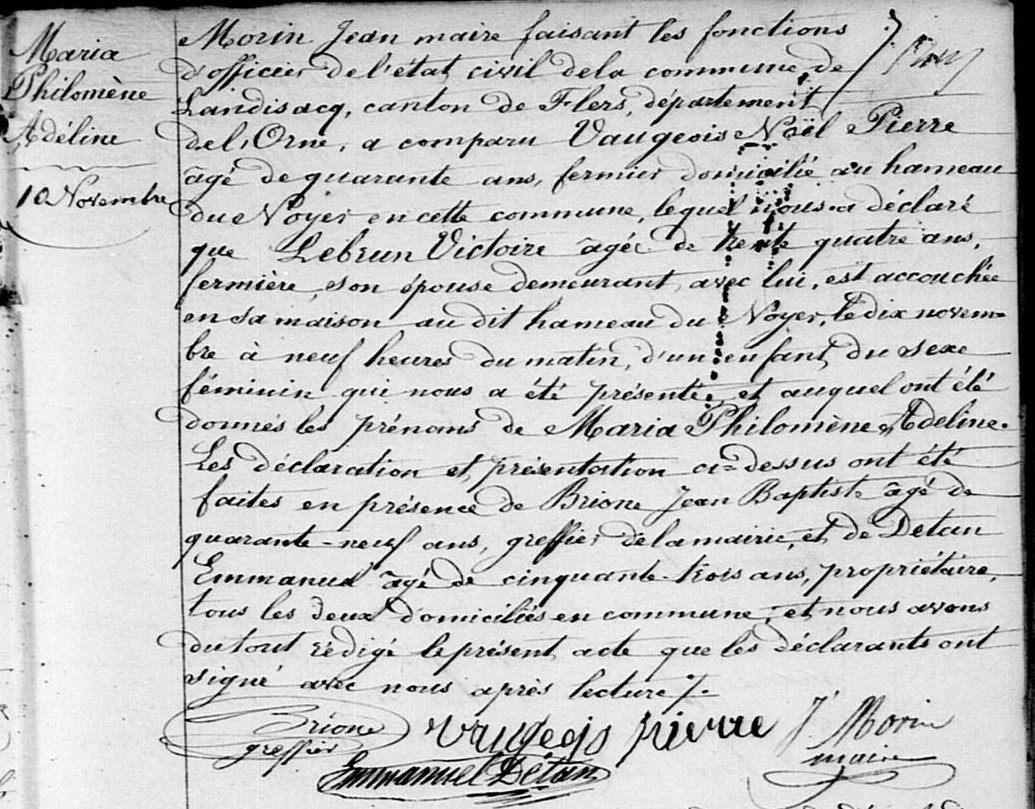 Maria
Philomène
Adéline
10 Novembre
Morin Jean maire faisant les fonctions
d'officier de l'état civil de la commune de
Landisacq, canton de Flers, département
de l'Orne, a comparu Vaugeois Noël Pierre
âgé de quarante ans, fermier domicilié au hameau
du Noyer en cette commune, lequel nous a déclaré
que Lebrun Victoire âgée de trente quatre ans,
fermière, son épouse demeurant avec lui, est accouchée
en sa maison au dit hameau du Noyer, le dix novem=
bre à neuf heures du matin, d'un enfant du sexe
féminin qui nous a été présentée, et auquel ont été
donnés les prénoms de Maria Philomène Adeline.
Les déclaration et présentation ci=dessus ont été
faites en présence de Brione Jean Baptiste âgé de
quarante-neuf ans, greffier de la mairie, et de Detan
Emmanuel âgé de cinquante-trois ans, propriétaire,
tous les deux domiciliés en commune, et nous avons
du tout rédigé le présent acte que les déclarants ont
signé avec nous après lecture ./.
Brione
greffier
Vaugeois pierre
J. Morin
maire
Emmanuel Detan